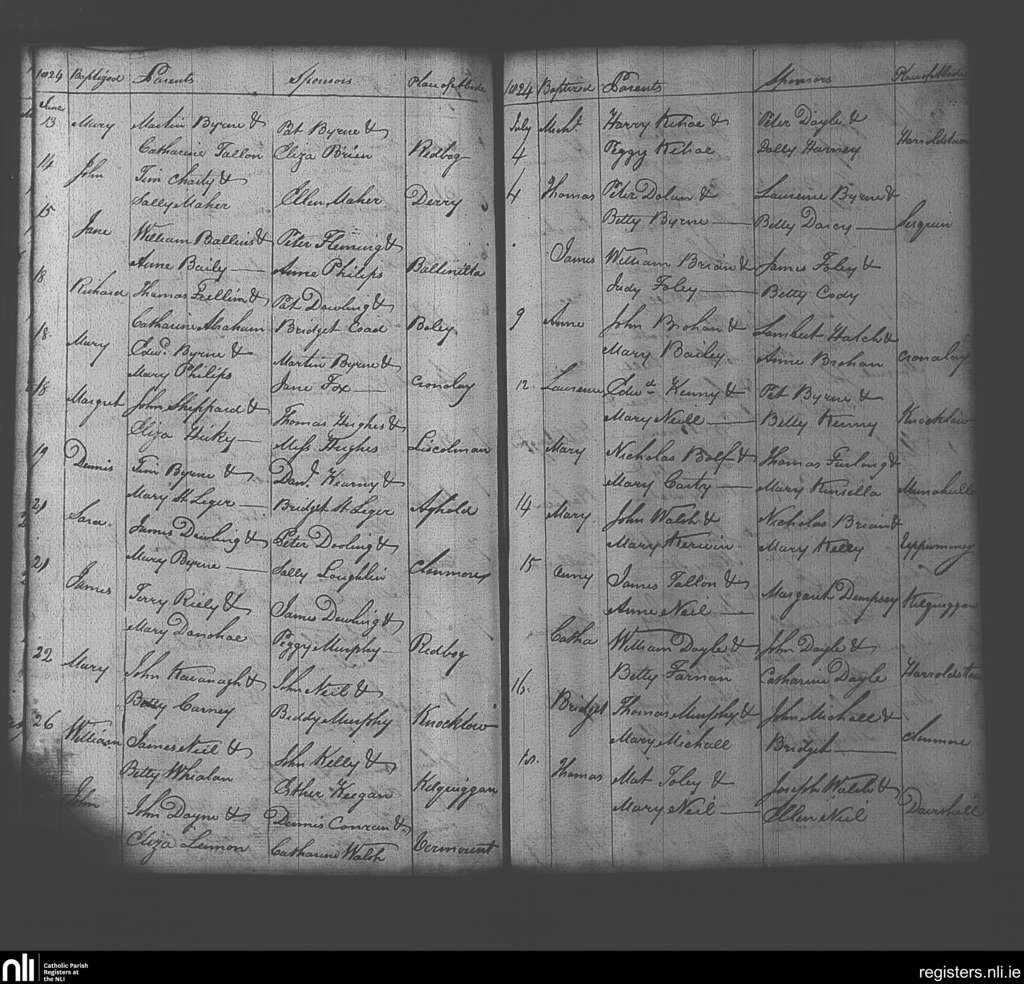 1824 Baptized Parents Sponsors Place of Abode
June
13 Mary Martin Byrne & Pat Byrne &
Catharine Tallon Eliza Brien Redbog
14 John Tim Charty &
Sally Maher Ellen Maher Derry
15 Jane William Ballins & Peter Fleming &
Anne Baily — Anne Philips
18 Richard Thomas & Pat Dowling &
Catharine Abraham Bridget Coad Boley
18 Mary Edwd. Byrne & Martin Byrne &
Mary Philips Jane Fox — Cronaley
18 Margret John Shippard & Thomas Hughes &
Eliza Hicky — Miss Hughes Liscolman
19 Dennis Tim Byrne & Danl. Kearny &
Mary St. Leger — Bridget St. Leger Aghold
21 Sara James Dowling & Peter Dooling &
Mary Byrne — Sally Loughlin Clonmore
21 James Terry Riely & James Dowling &
Mary Donohoe Peggy Murphy — Redbog
22 Mary John Kavanagh & John Neil &
Betty Carney Biddy Murphy Knocklow
26 William James Neil & John Kelly &
Betty Whialan Esther Keegan Kilquiggan
John John Doyne & Dennis Conran &
Eliza Lennon Catharine Walsh Vermount
1824 Baptized Parents Sponsors Place of Abode
July Michl. Harry Kehoe & Peter Doyle &
4 Peggy Kehoe Dolly Harney Haroldstown
4 Thomas Peter Dolan & Laurence Byrne &
Betty Byrne — Betty Darcy —
James William Brian & James Foley &
Judy Foley — Betty Cody
9 Anne John Brohan & Lambert Hatch &
Mary Bailey Anne Brohan Cronaley
12 Laurence Edwd. Kenny & Pat Byrne &
Mary Neill — Betty Kenny Knocklow
Mary Nicholas Bolf & Thomas Furlong &
Mary Carty — Mary Kinsella Munahulle
14 Mary John Walsh & Nicholas Brian &
Mary Kerwin Mary Kelly
15 Anny James Tallon & Margaret Dempsey Kilquiggan
Anne Neil —
Catha William Doyle & John Doyle &
Betty Farnan Catharine Doyle Harroldstown
16 Bridget Thomas Murphy & John Michall &
Mary Michall Bridget — Clonmore
Thomas Mat Foley & Joseph Walsh &
Mary Neil — Ellen Neil
nli Catholic Parish
Registers at
the NLI
registers.nli.ie